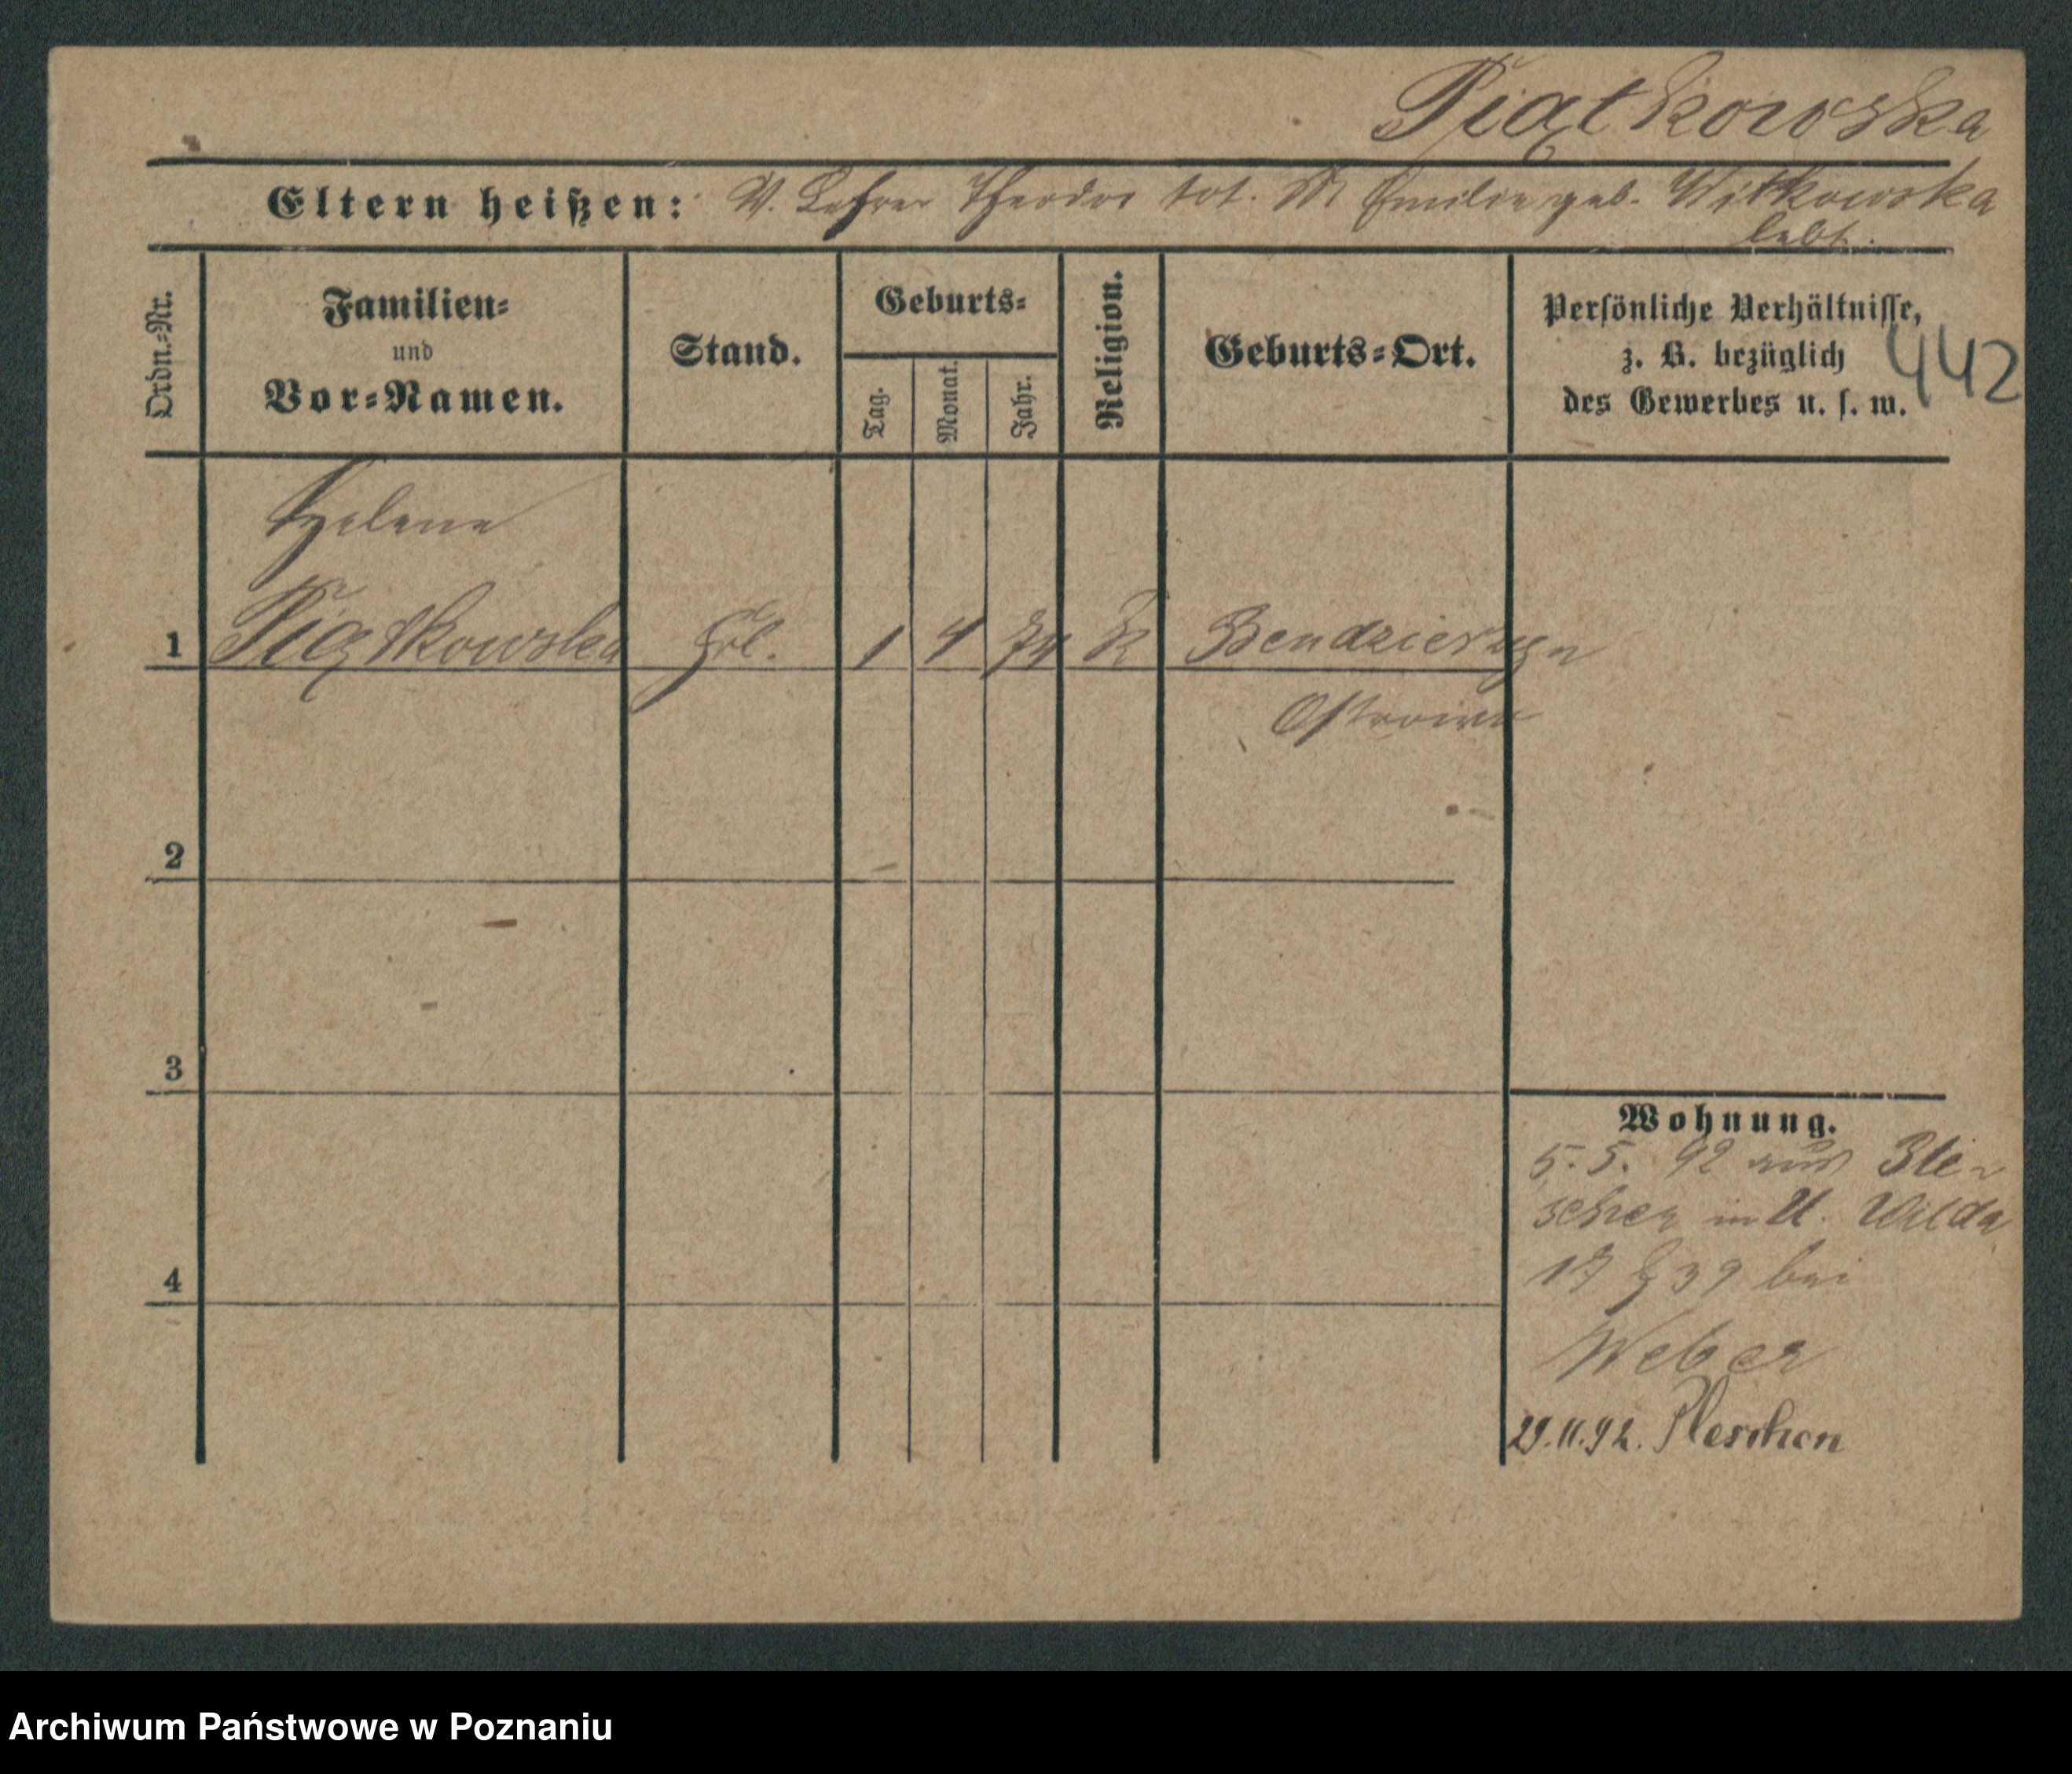 Piątkowska
Eltern heißen: V. Lehrer Theodor tot. M Emilie geb. Witkowska
lebt.
Ordn.-Nr.
Familien-
und
Vor-Namen.
Stand.
Geburts-
Tag.
Monat.
Jahr.
Religion.
Geburts-Ort.
Persönliche Verhältnisse,
z. B. bezüglich
des Gewerbes u. s. w.
442
Helene
1 Piątkowska Frl. 1 4 74 K
Ostrowo
2
3
4
Wohnung.
5.5. 92 aus
in U. Wilda
17 39 bei
Weber
29.11.92. Pleschen
Archiwum Państwowe w Poznaniu